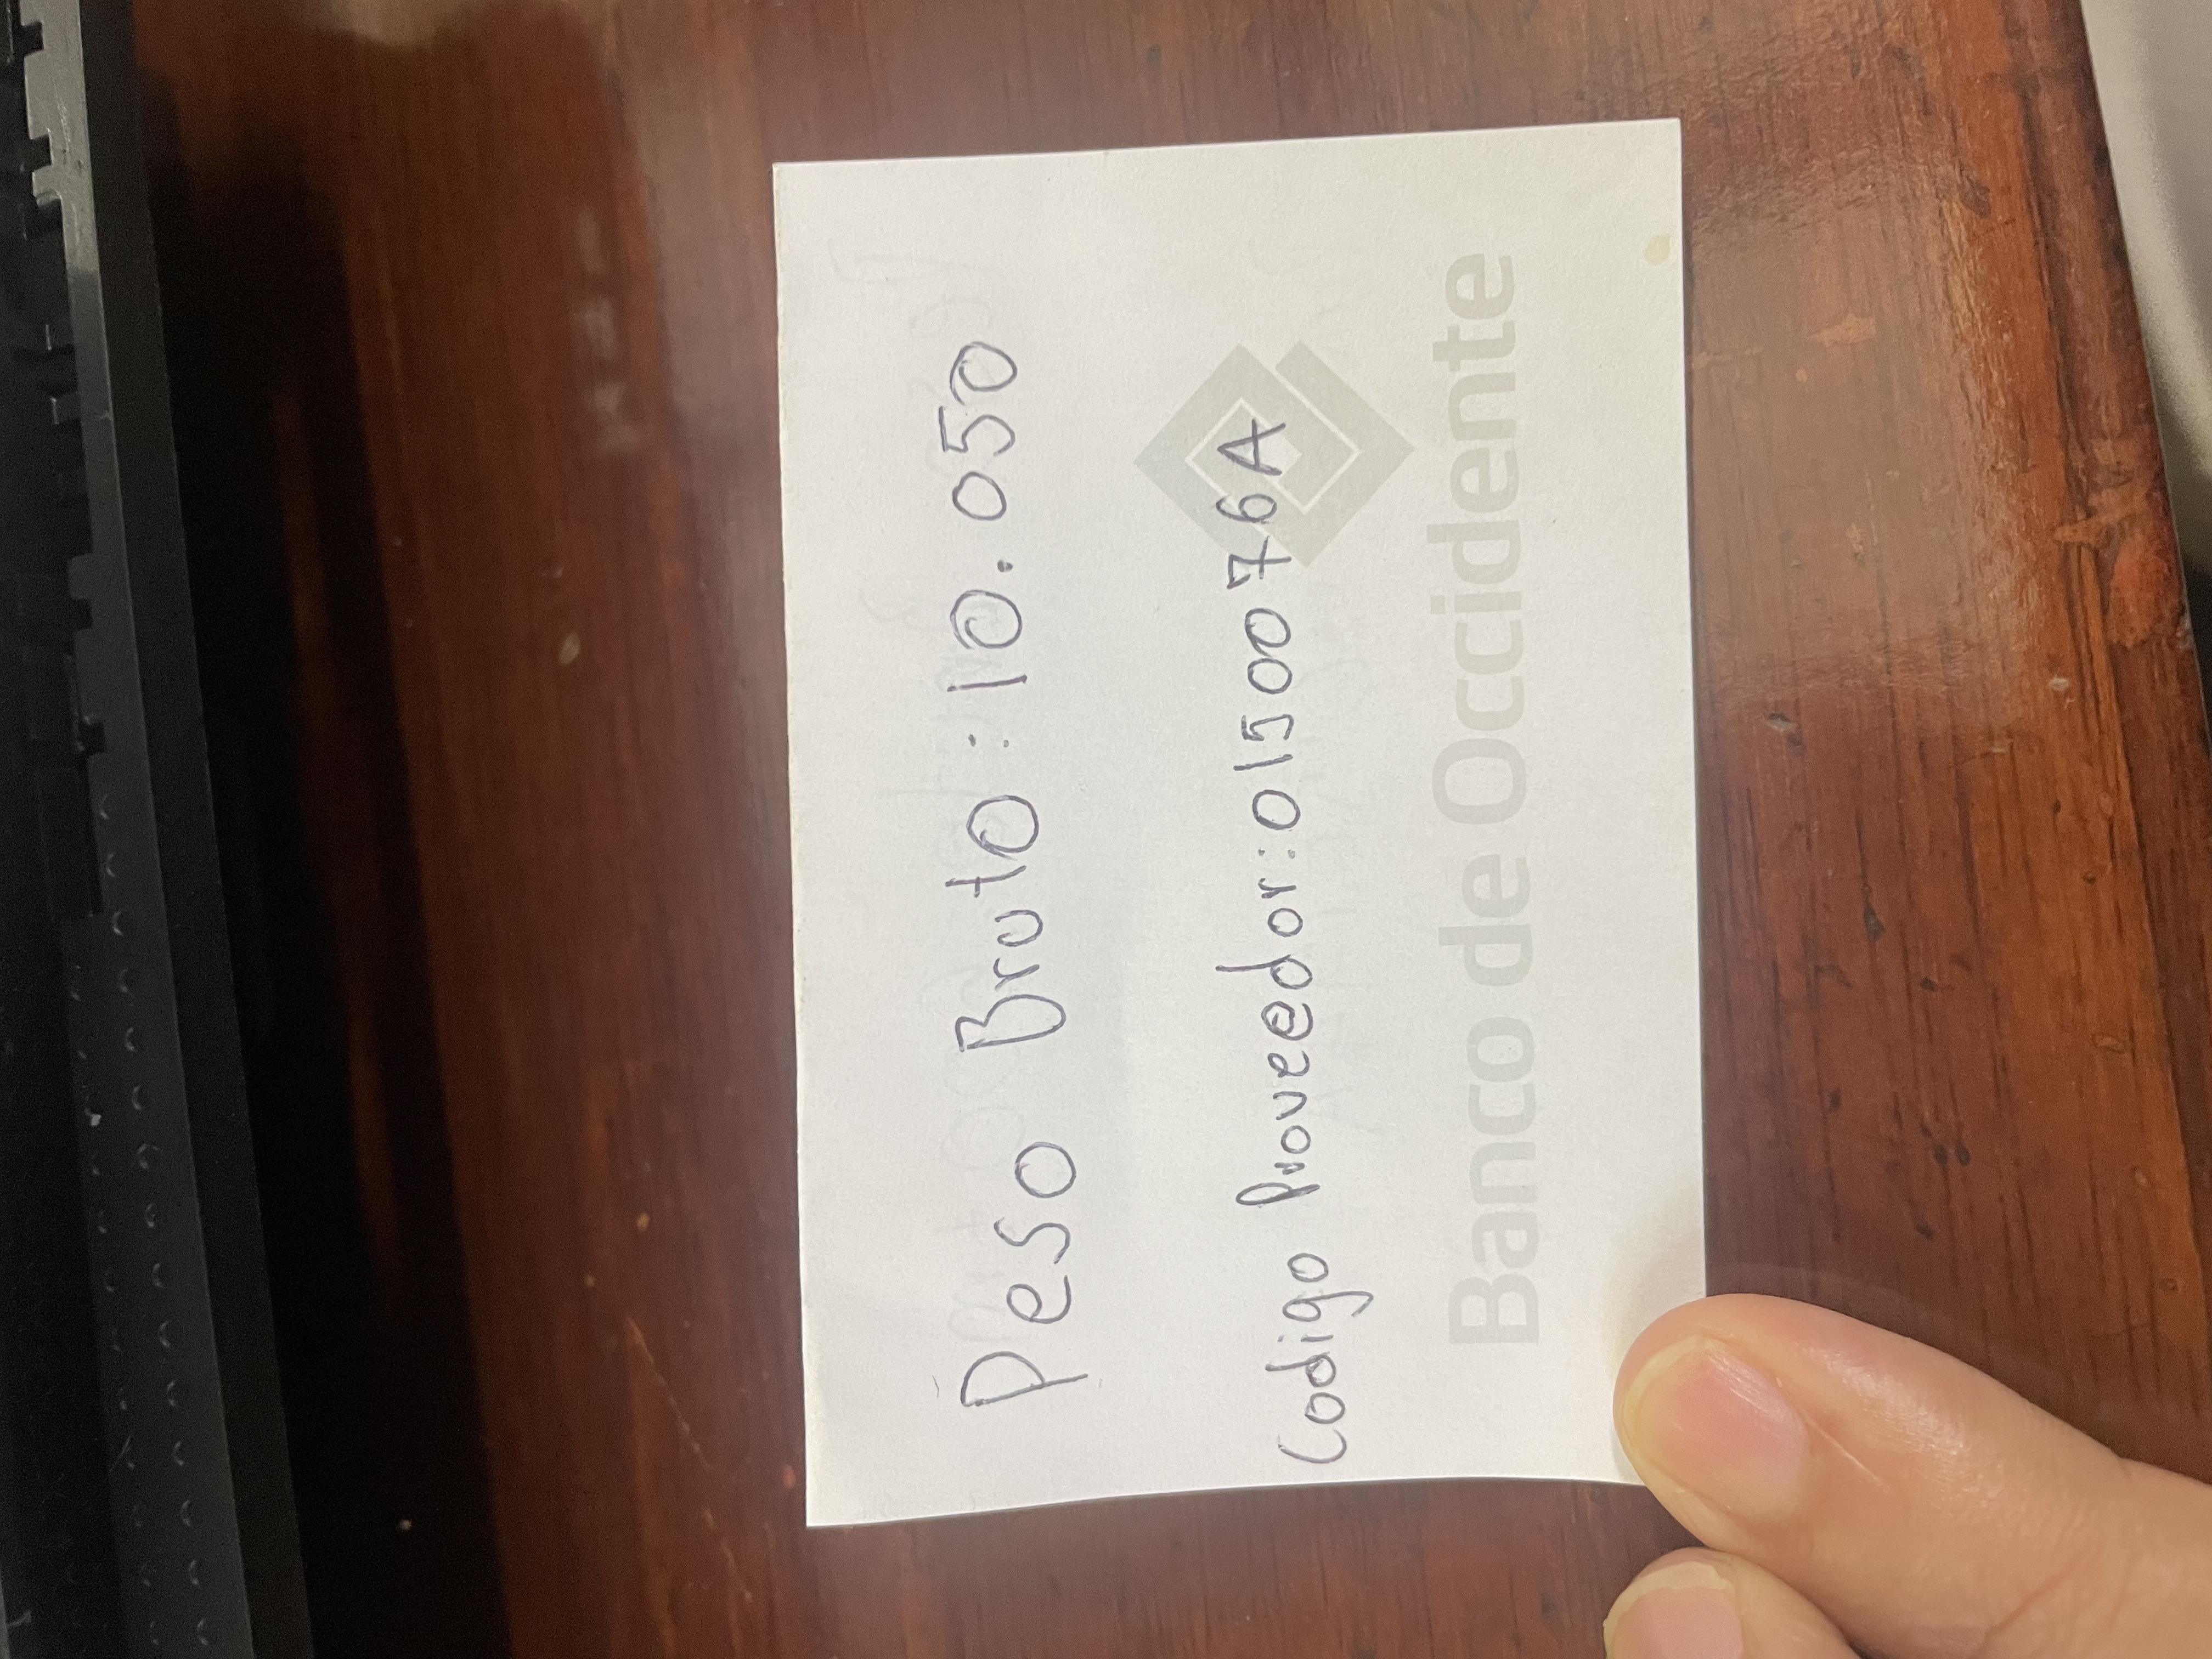 Peso Bruto: 10.050
Codigo Proveedor: 0150076A
Banco de Occidente